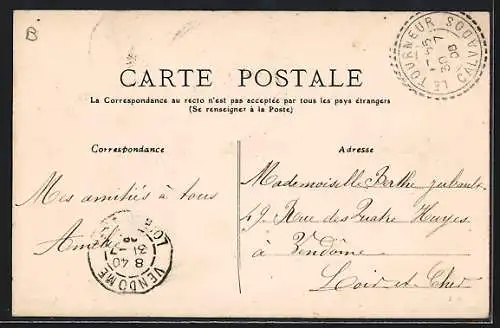 B
LE TOURNEUR CALVADOS
17-35
30 7
08
CARTE POSTALE
La Correspondance au recto n'est pas acceptée par tous les pays étrangers
(Se renseigner à la Poste)
Correspondance
Adresse
Mes amitiés à tous
Mademoiselle Berthe
49 Rue des Quatre Huyes
à Vendôme
Loir et Cher
VENDOME
8 40
31 - 7